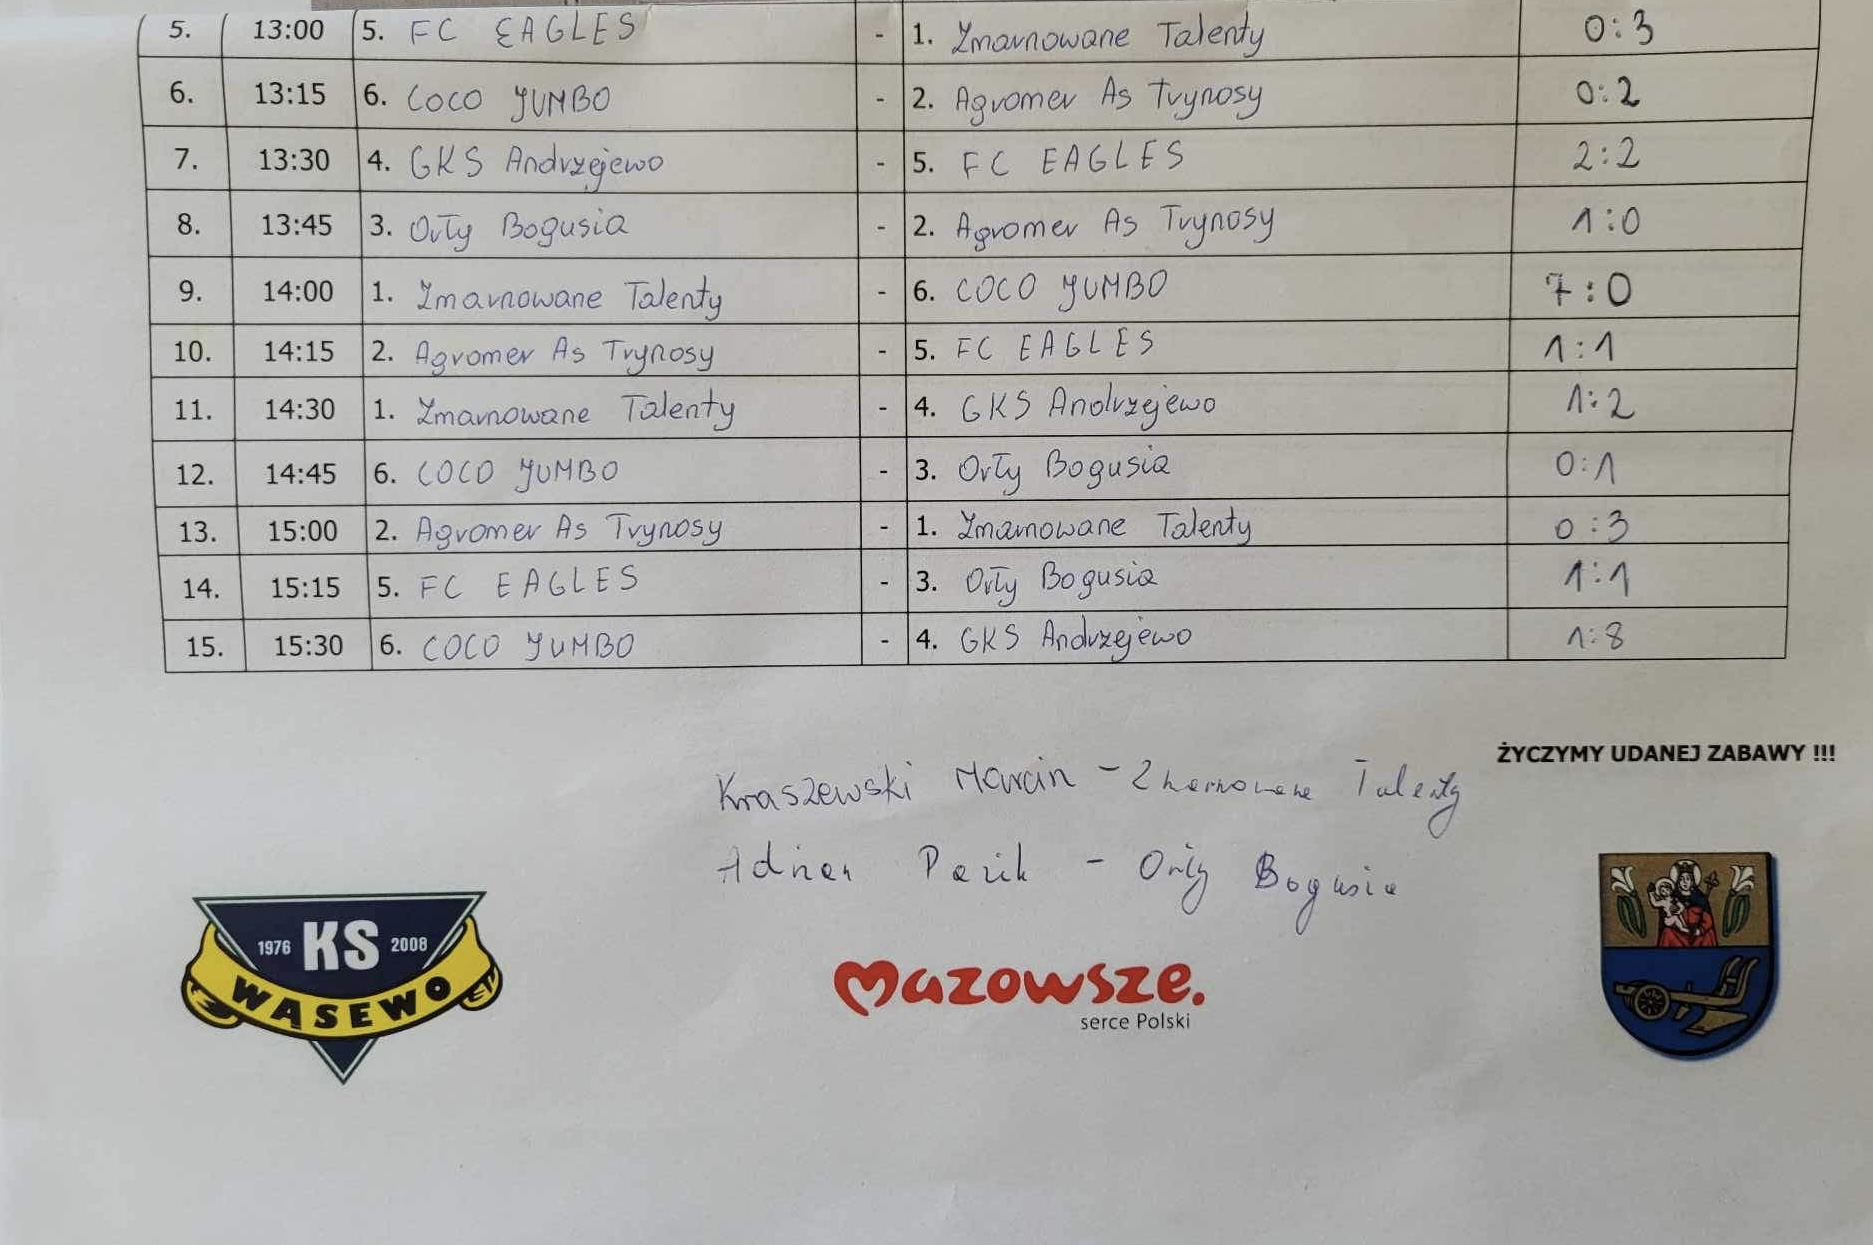 5. 13:00 5. FC EAGLES - 1. Zmarnowane Talenty 0:3
6. 13:15 6. COCO JUMBO - 2. Agromer As Trynosy 0:2
7. 13:30 4. GKS Andrzejewo - 5. FC EAGLES 2:2
8. 13:45 3. Orły Bogusia - 2. Agromer As Trynosy 1:0
9. 14:00 1. Zmarnowane Talenty - 6. COCO JUMBO 7:0
10. 14:15 2. Agromer As Trynosy - 5. FC EAGLES 1:1
11. 14:30 1. Zmarnowane Talenty - 4. GKS Andrzejewo 1:2
12. 14:45 6. COCO JUMBO - 3. Orły Bogusia 0:1
13. 15:00 2. Agromer As Trynosy - 1. Zmarnowane Talenty 0:3
14. 15:15 5. FC EAGLES - 3. Orły Bogusia 1:1
15. 15:30 6. COCO JUMBO - 4. GKS Andrzejewo 1:8
ŻYCZYMY UDANEJ ZABAWY !!!
Kraszewski Marcin - Zmarnowane Talenty
Adrian - Orły Bogusia
1976 KS 2008
WĄSEWO
mazowsze.
serce Polski